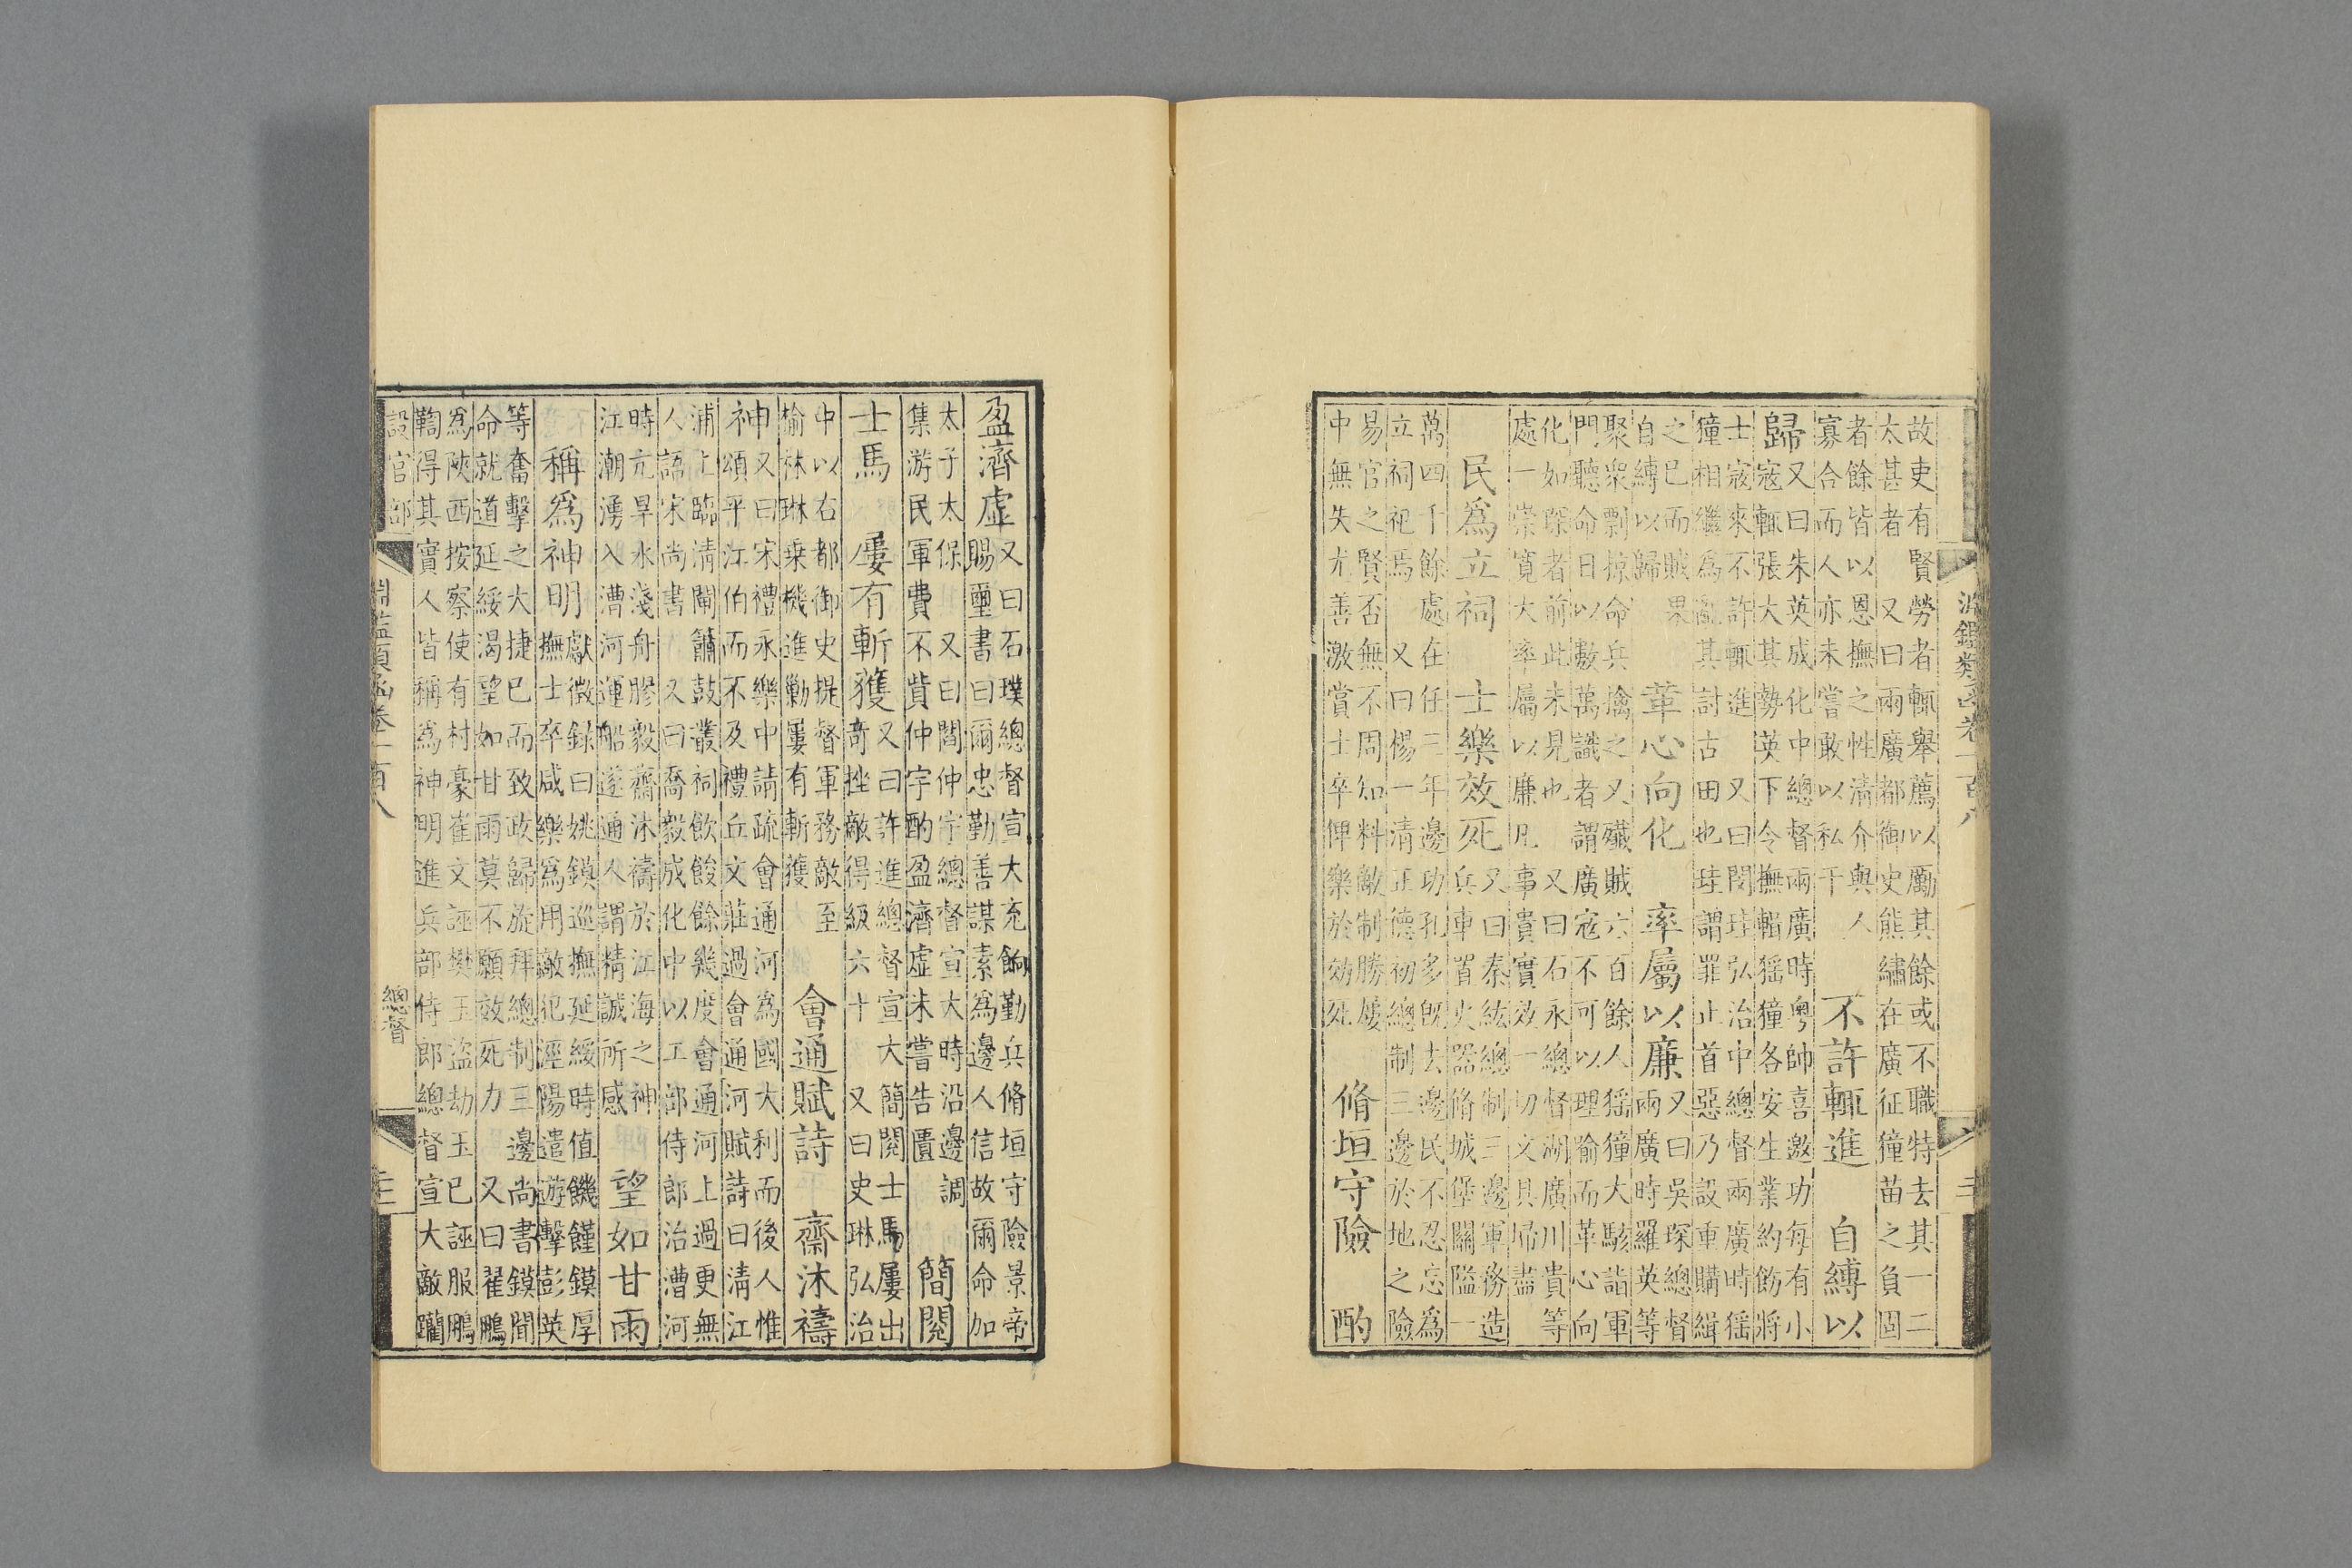 淵鑑類函卷一百八
故吏有賢勞者輒舉薦以勵其餘或不職特去其一二
太甚者 又曰兩廣都御史熊繡在廣征獞苗之負固
者餘皆以恩撫之性清介與人
寡合而人亦未嘗敢以私干
不許輒進 自縛以
歸
又曰朱英成化中總督兩廣時粵帥喜邀功每有小
寇輒張大其勢英下令撫輯猺獞各安生業約飭將
士寇來不許輒進 又曰閔珪弘治中總督兩廣時猺
獞相繼為亂其討古田也珪謂罪止首惡乃設重購緝
之已而賊果
自縛以歸
革心向化 率屬以廉
又曰吳琛總督
兩廣時羅英等
聚衆剽掠命兵擒之又殲賊六百餘人猺獞大駭詣軍
門聽命日以數萬識者謂廣寇不可以理喻而革心向
化如琛者前此未見也 又曰石永總督湖廣川貴等
處一崇寬大率屬以廉凡事貴實效一切文具埽盡
民爲立祠 士樂效死
又曰秦紘總制三邊軍務造
兵車置火器脩城堡關隘一
萬四千餘處在任三年邊功孔多旣去邊民不忍忘爲
立祠祀焉 又曰楊一清正德初總制三邊於地之險
易官之賢否無不周知料敵制勝屢
中無失尤善激賞士卒俾樂於効死
脩垣守險 酌
盈濟虛
又曰石璞總督宣大充餉勤兵脩垣守險景帝
賜璽書曰爾忠勤善謀素爲邊人信故爾命加
太子太保 又曰閻仲宇總督宣大時沿邊調
集游民軍費不貲仲宇酌盈濟虛未嘗告匱
簡閱
士馬 屢有斬獲
又曰許進總督宣大簡閱士馬屢出
奇挫敵得級六十 又曰史琳弘治
中以右都御史提督軍務敵至
榆林琳乗機進勦屢有斬獲
會通賦詩 齋沐禱
神
又曰宋禮永樂中請疏會通河爲國大利而後人惟
頌平江伯而不及禮丘文莊過會通河賦詩曰清江
浦上臨清閘簫鼓叢祠飲餕餘幾度會通河上過更無
人語宋尚書 又曰喬毅成化中以工部侍郎治漕河
時亢旱水淺舟膠毅齋沐禱於江海之神
江潮湧入漕河運船遂通人謂精誠所感
望如甘雨
稱爲神明
獻徵録曰姚鏌巡撫延綏時值饑饉鏌厚
撫士卒咸樂爲用敵犯涇陽遣遊擊彭英
等奮擊之大捷已而致政歸旋拜總制三邊尚書鏌聞
命就道延綏渴望如甘雨莫不願效死力 又曰翟鵬
爲陝西按察使有村豪崔文誣樊玉盗劫玉已誣服鵬
鞫得其實人皆稱爲神明進兵部侍郎總督宣大敵躪
淵鑑類函卷一百八
設官部
總督